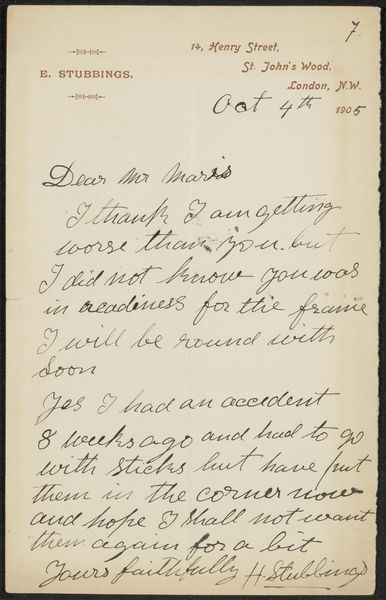 7.
14, Henry Street,
St. John's Wood,
London, N.W.
E. STUBBINGS.
Oct 4th 1905
Dear Mr Maris
I thank I am getting
worse than you but
I did not know you was
in readiness for the frame
I will be round with
Soon
Yes I had an accident
8 weeks ago and had to go
with sticks but have put
them in the corner now
and hope I shall not want
them again for a bit
Yours faithfully H Stubbings